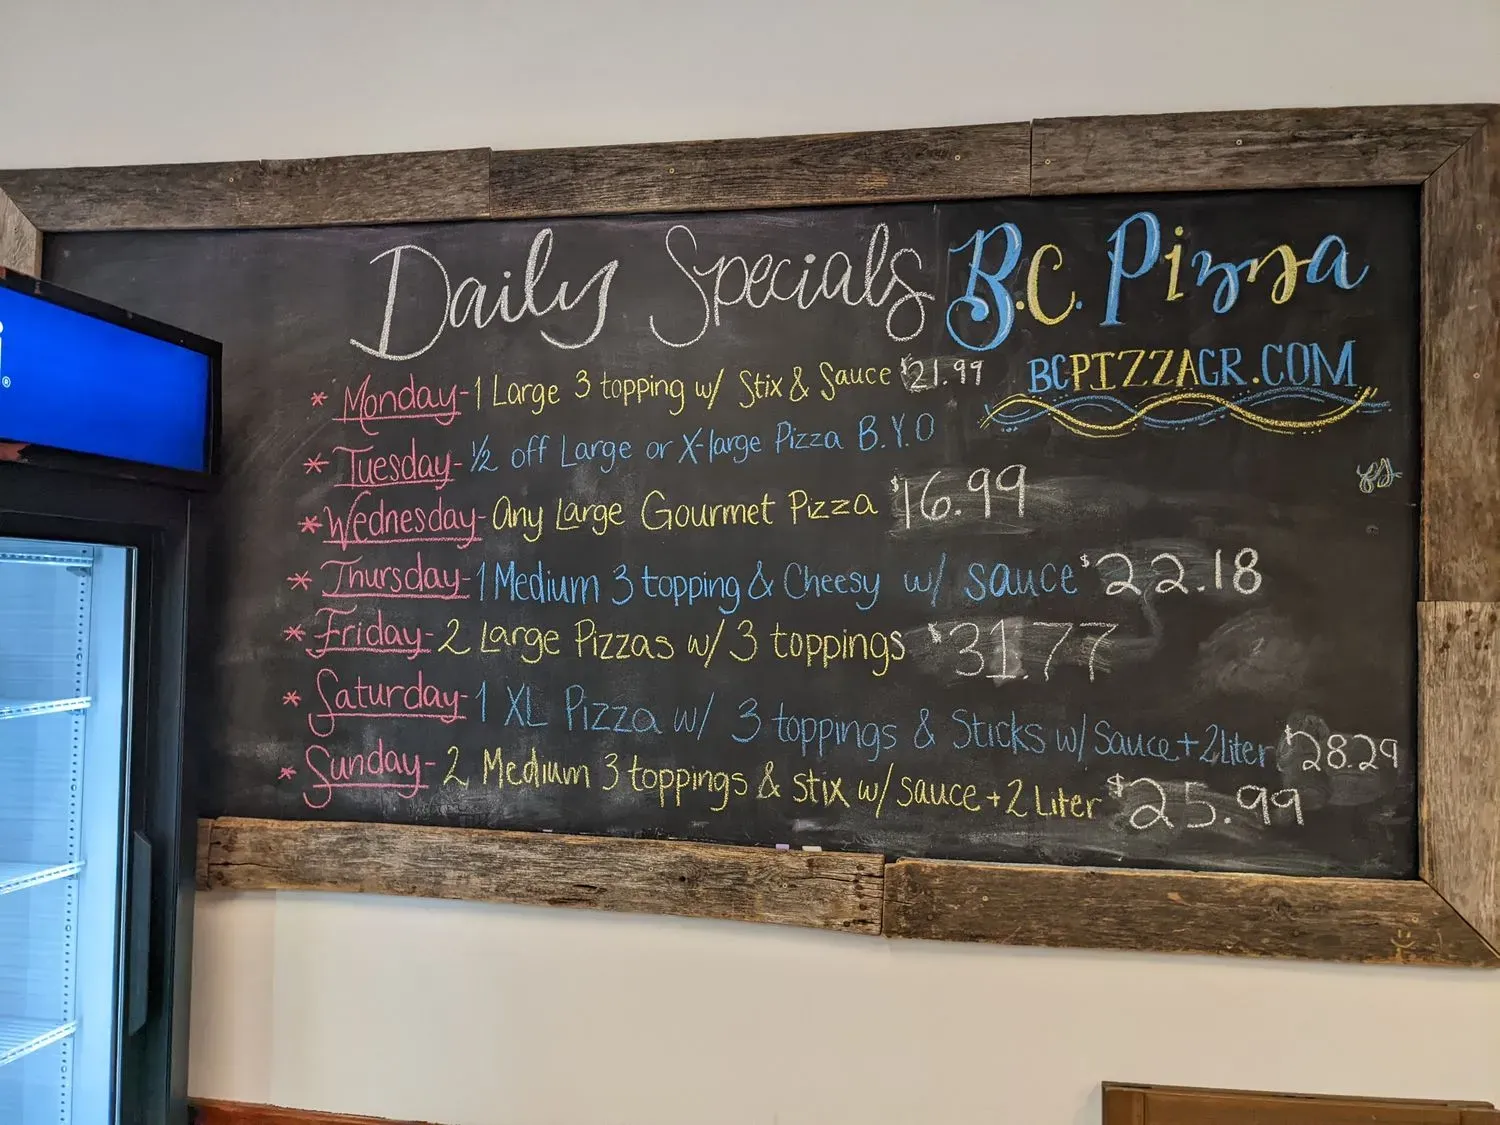 Daily Specials B.C. Pizza
BCPIZZAGR.COM
* Monday - 1 Large 3 topping w/ Stix & Sauce $21.99
* Tuesday - ½ off Large or X-large Pizza B.Y.O
* Wednesday - Any Large Gourmet Pizza $16.99
* Thursday - 1 Medium 3 topping & Cheesy w/ sauce $22.18
* Friday - 2 Large Pizzas w/ 3 toppings $31.77
* Saturday - 1 XL Pizza w/ 3 toppings & Sticks w/ Sauce + 2 liter $28.29
* Sunday - 2 Medium 3 toppings & stix w/ sauce + 2 Liter $25.99